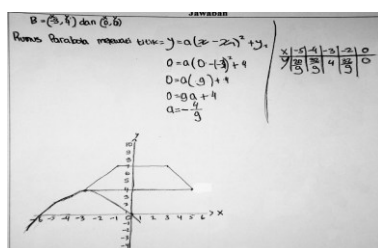 Jawaban
B = (-3, 4) dan (0, 0)
Rumus Parabola melalui titik = y = a(x - xp)² + yp
0 = a(0 - (-3))² + 4
0 = a(9) + 4
0 = 9a + 4
a = -4/9
x | -5 | -4 | -3 | -2 | 0
y | 20/9 | 32/9 | 4 | 32/9 | 0
y
10
-6 -5 -4 -3 -2 -1 0 1 2 3 4 5 6 > x